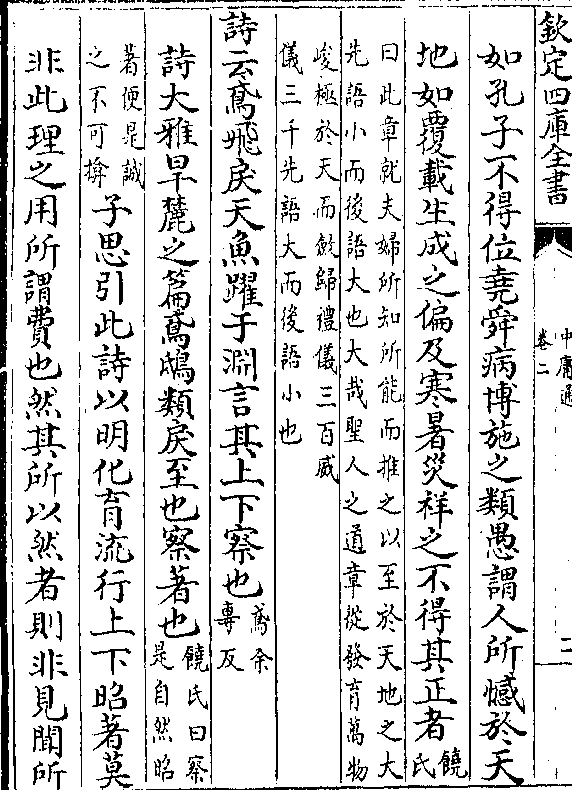 欽定四庫全書
中庸通
卷二
二
如孔子不得位堯舜病博施之類愚謂人所憾於天
地如覆載生成之偏及寒暑災祥之不得其正者
饒氏
曰此章就夫婦所知所能而推之以至於天地之大
先語小而後語大也大哉聖人之道章從發育萬物
峻極於天而斂歸禮儀三百威
儀三千先語大而後語小也
詩云鳶飛戾天魚躍于淵言其上下察也
鳶余
專反
詩大雅旱麓之篇鳶鴟類戾至也察著也
饒氏曰察
是自然昭
著便是誠
之不可揜
子思引此詩以明化育流行上下昭著莫
非此理之用所謂費也然其所以然者則非見聞所